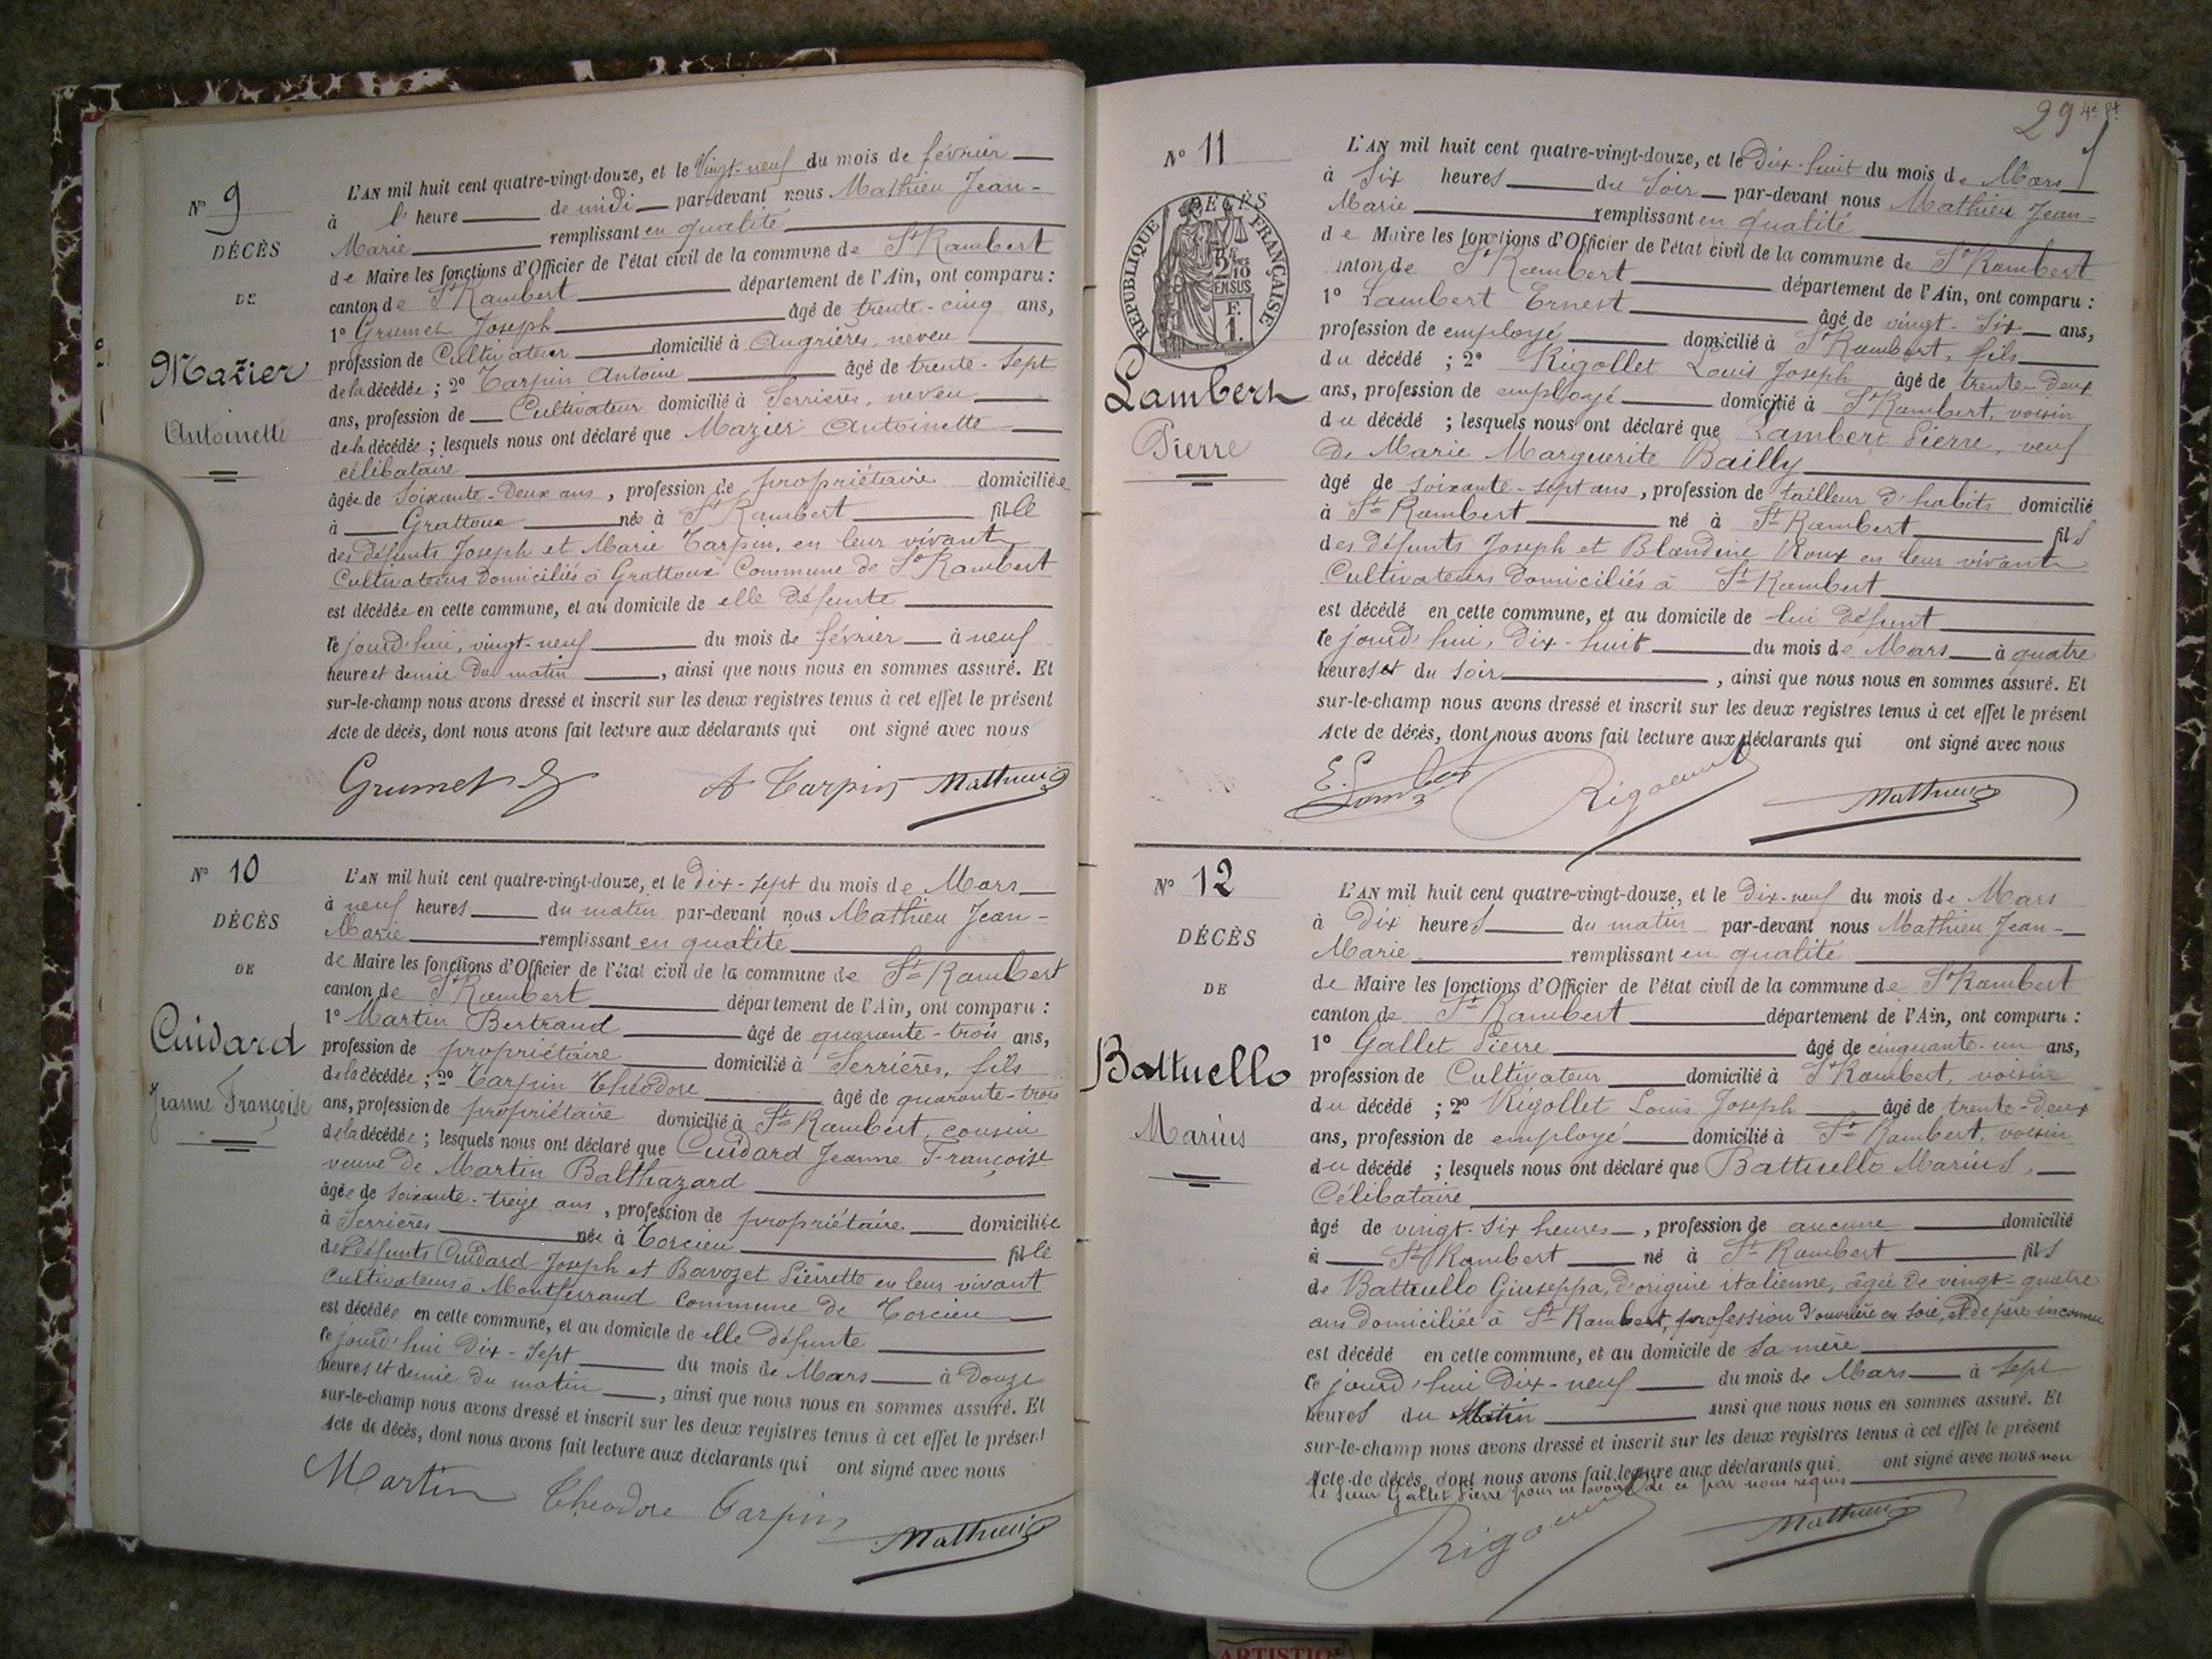 N° 9
DÉCÈS
DE
Mazier
Antoinette
L'AN mil huit cent quatre-vingt-douze, et le Vingt-neuf du mois de février
à l' heure de midi par-devant nous Mathieu Jean-
Marie remplissant en qualité
de Maire les fonctions d'Officier de l'état civil de la commune de St Rambert
canton de St Rambert département de l'Ain, ont comparu :
1° Grumet Joseph âgé de trente-cinq ans,
profession de Cultivateur domicilié à Angrières, neveu
de la décédée ; 2° Tarpin Antoine âgé de trente-sept
ans, profession de Cultivateur domicilié à Serrières, neveu
de la décédée ; lesquels nous ont déclaré que Mazier Antoinette
célibataire
âgée de soixante-deux ans, profession de propriétaire domiciliée
à Grattoux née à St Rambert fille
des défunts Joseph et Marie Tarpin, en leur vivant
Cultivateurs domiciliés à Grattoux Commune de St Rambert
est décédée en cette commune, et au domicile de elle défunte
ce jourd'hui, vingt-neuf du mois de février à neuf
heure et demie du matin, ainsi que nous nous en sommes assuré. Et
sur-le-champ nous avons dressé et inscrit sur les deux registres tenus à cet effet le présent
Acte de décès, dont nous avons fait lecture aux déclarants qui ont signé avec nous
Grumet J A Tarpin Mathieu
N° 10
DÉCÈS
DE
Cuidard
Jeanne Françoise
L'AN mil huit cent quatre-vingt-douze, et le dix-sept du mois de Mars
à neuf heures du matin par-devant nous Mathieu Jean-
Marie remplissant en qualité
de Maire les fonctions d'Officier de l'état civil de la commune de St Rambert
canton de St Rambert département de l'Ain, ont comparu :
1° Martin Bertrand âgé de quarante-trois ans,
profession de propriétaire domicilié à Serrières, fils
de la décédée ; 2° Tarpin Théodore âgé de quarante-trois
ans, profession de propriétaire domicilié à St Rambert, cousin
de la décédée ; lesquels nous ont déclaré que Cuidard Jeanne Françoise
veuve de Martin Balthazard
âgée de soixante-treize ans, profession de propriétaire domiciliée
à Serrières née à Torcieu fille
des défunts Cuidard Joseph et Bavozet Pierrette en leur vivant
Cultivateurs à Montferrand Commune de Torcieu
est décédée en cette commune, et au domicile de elle défunte
ce jourd'hui dix-sept du mois de Mars à douze
heures et demie du matin, ainsi que nous nous en sommes assuré. Et
sur-le-champ nous avons dressé et inscrit sur les deux registres tenus à cet effet le présent
Acte de décès, dont nous avons fait lecture aux déclarants qui ont signé avec nous
Martin Théodore Tarpin
Mathieu
29
N° 11
RÉPUBLIQUE FRANÇAISE
2/10
EN SUS
F.
1.
Lambert
Pierre
L'AN mil huit cent quatre-vingt-douze, et le Dix-huit du mois de Mars
à Six heures du Soir par-devant nous Mathieu Jean-
Marie remplissant en qualité
de Maire les fonctions d'Officier de l'état civil de la commune de St Rambert
anton de St Rambert département de l'Ain, ont comparu :
1° Lambert Ernest âgé de vingt-six ans,
profession de employé domicilié à St Rambert, fils
du décédé ; 2° Rigollet Louis Joseph âgé de trente-deux
ans, profession de employé domicilié à St Rambert, voisin
du décédé ; lesquels nous ont déclaré que Lambert Pierre, veuf
de Marie Marguerite Bailly
âgé de soixante-sept ans, profession de tailleur d'habits domicilié
à St Rambert né à St Rambert fils
des défunts Joseph et Blandine Roux en leur vivant
Cultivateurs domiciliés à St Rambert
est décédé en cette commune, et au domicile de lui défunt
ce jourd'hui, dix-huit du mois de Mars à quatre
heures du soir, ainsi que nous nous en sommes assuré. Et
sur-le-champ nous avons dressé et inscrit sur les deux registres tenus à cet effet le présent
Acte de décès, dont nous avons fait lecture aux déclarants qui ont signé avec nous
E. Lambert Mathieu
N° 12
DÉCÈS
DE
Battuello
Marius
L'AN mil huit cent quatre-vingt-douze, et le dix-neuf du mois de Mars
à dix heures du matin par-devant nous Mathieu Jean-
Marie remplissant en qualité
de Maire les fonctions d'Officier de l'état civil de la commune de St Rambert
canton de St Rambert département de l'Ain, ont comparu :
1° Gallet Pierre âgé de cinquante-un ans,
profession de Cultivateur domicilié à St Rambert, voisin
du décédé ; 2° Rigollet Louis Joseph âgé de trente-deux
ans, profession de employé domicilié à St Rambert, voisin
du décédé ; lesquels nous ont déclaré que Battuello Marius,
Célibataire
âgé de vingt-six heures, profession de aucune domicilié
à St Rambert né à St Rambert fils
de Battuello Giuseppa, d'origine italienne, âgée de vingt-quatre
ans domiciliée à St Rambert, profession d'ouvrière en soie, et de père inconnu
est décédé en cette commune, et au domicile de sa mère
ce jourd'hui dix-neuf du mois de Mars à sept
heures du Matin ainsi que nous nous en sommes assuré. Et
sur-le-champ nous avons dressé et inscrit sur les deux registres tenus à cet effet le présent
Acte de décès, dont nous avons fait lecture aux déclarants qui ont signé avec nous non
le sieur Gallet Pierre pour ne savoir de ce par nous requis
Mathieu
ARTISTIQ